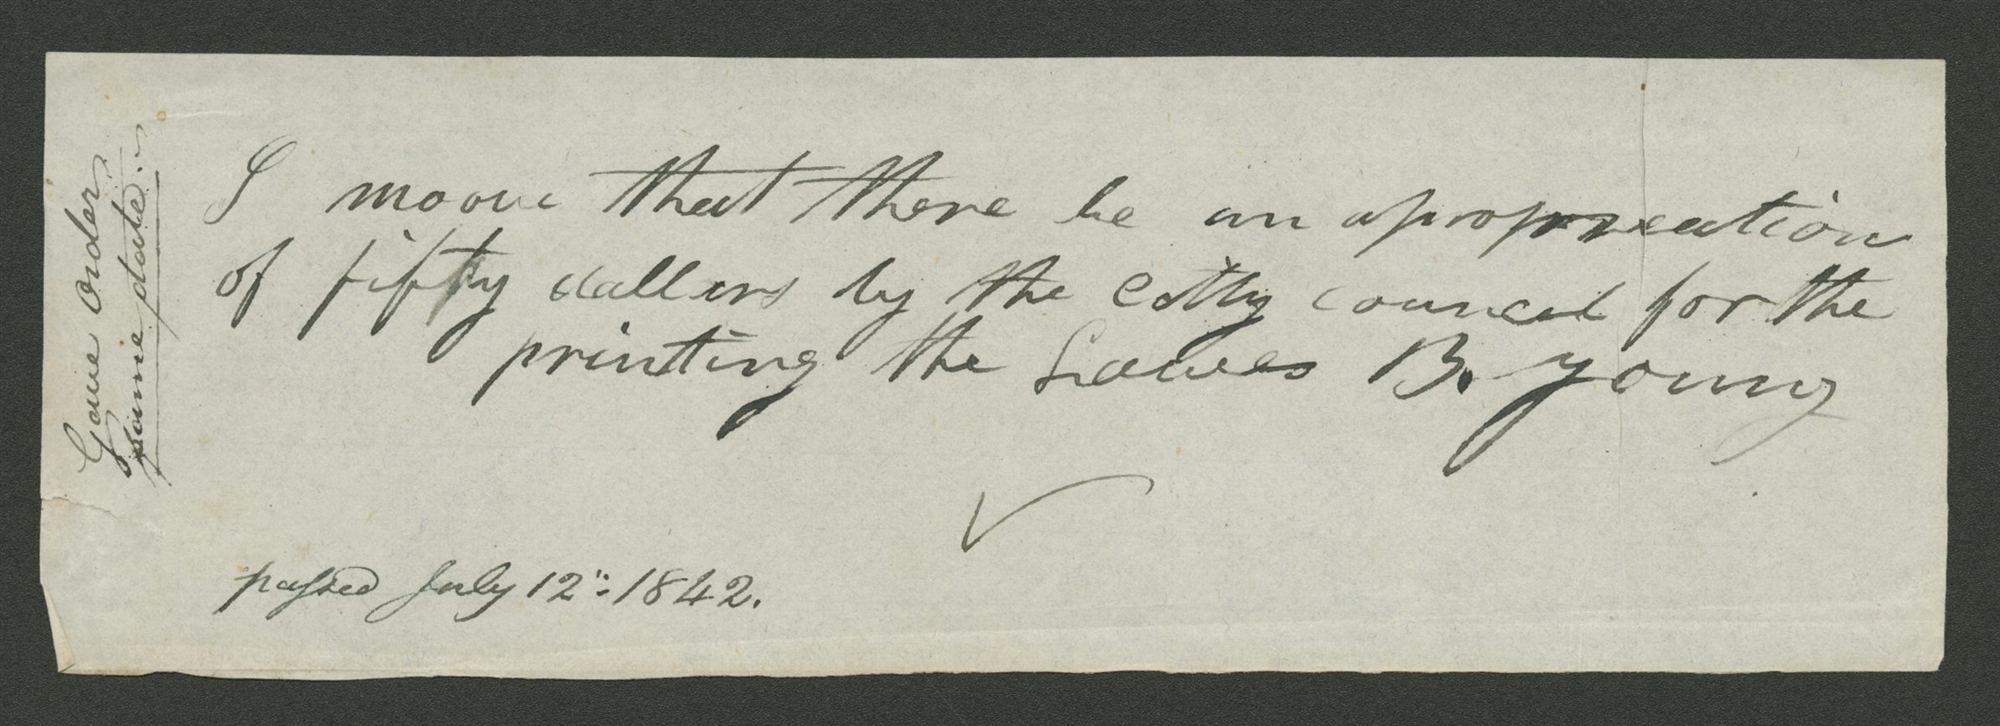 I moove that there be an apropreation
of fifty dallers by the Citty council for the
printing the Lawes B. young
passed July 12": 1842.
Gave order
same date.